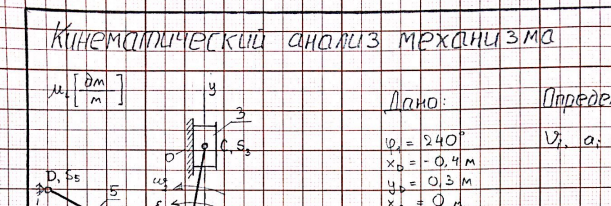 Кинематический анализ механизма
μ_l [дм/м]
y
3
O
C, S₃
D, S₅
5
Дано:
φ₁ = 240°
x_D = -0,4 м
y_D = 0,3 м
= 0 м
Опреде
V_i, a_i